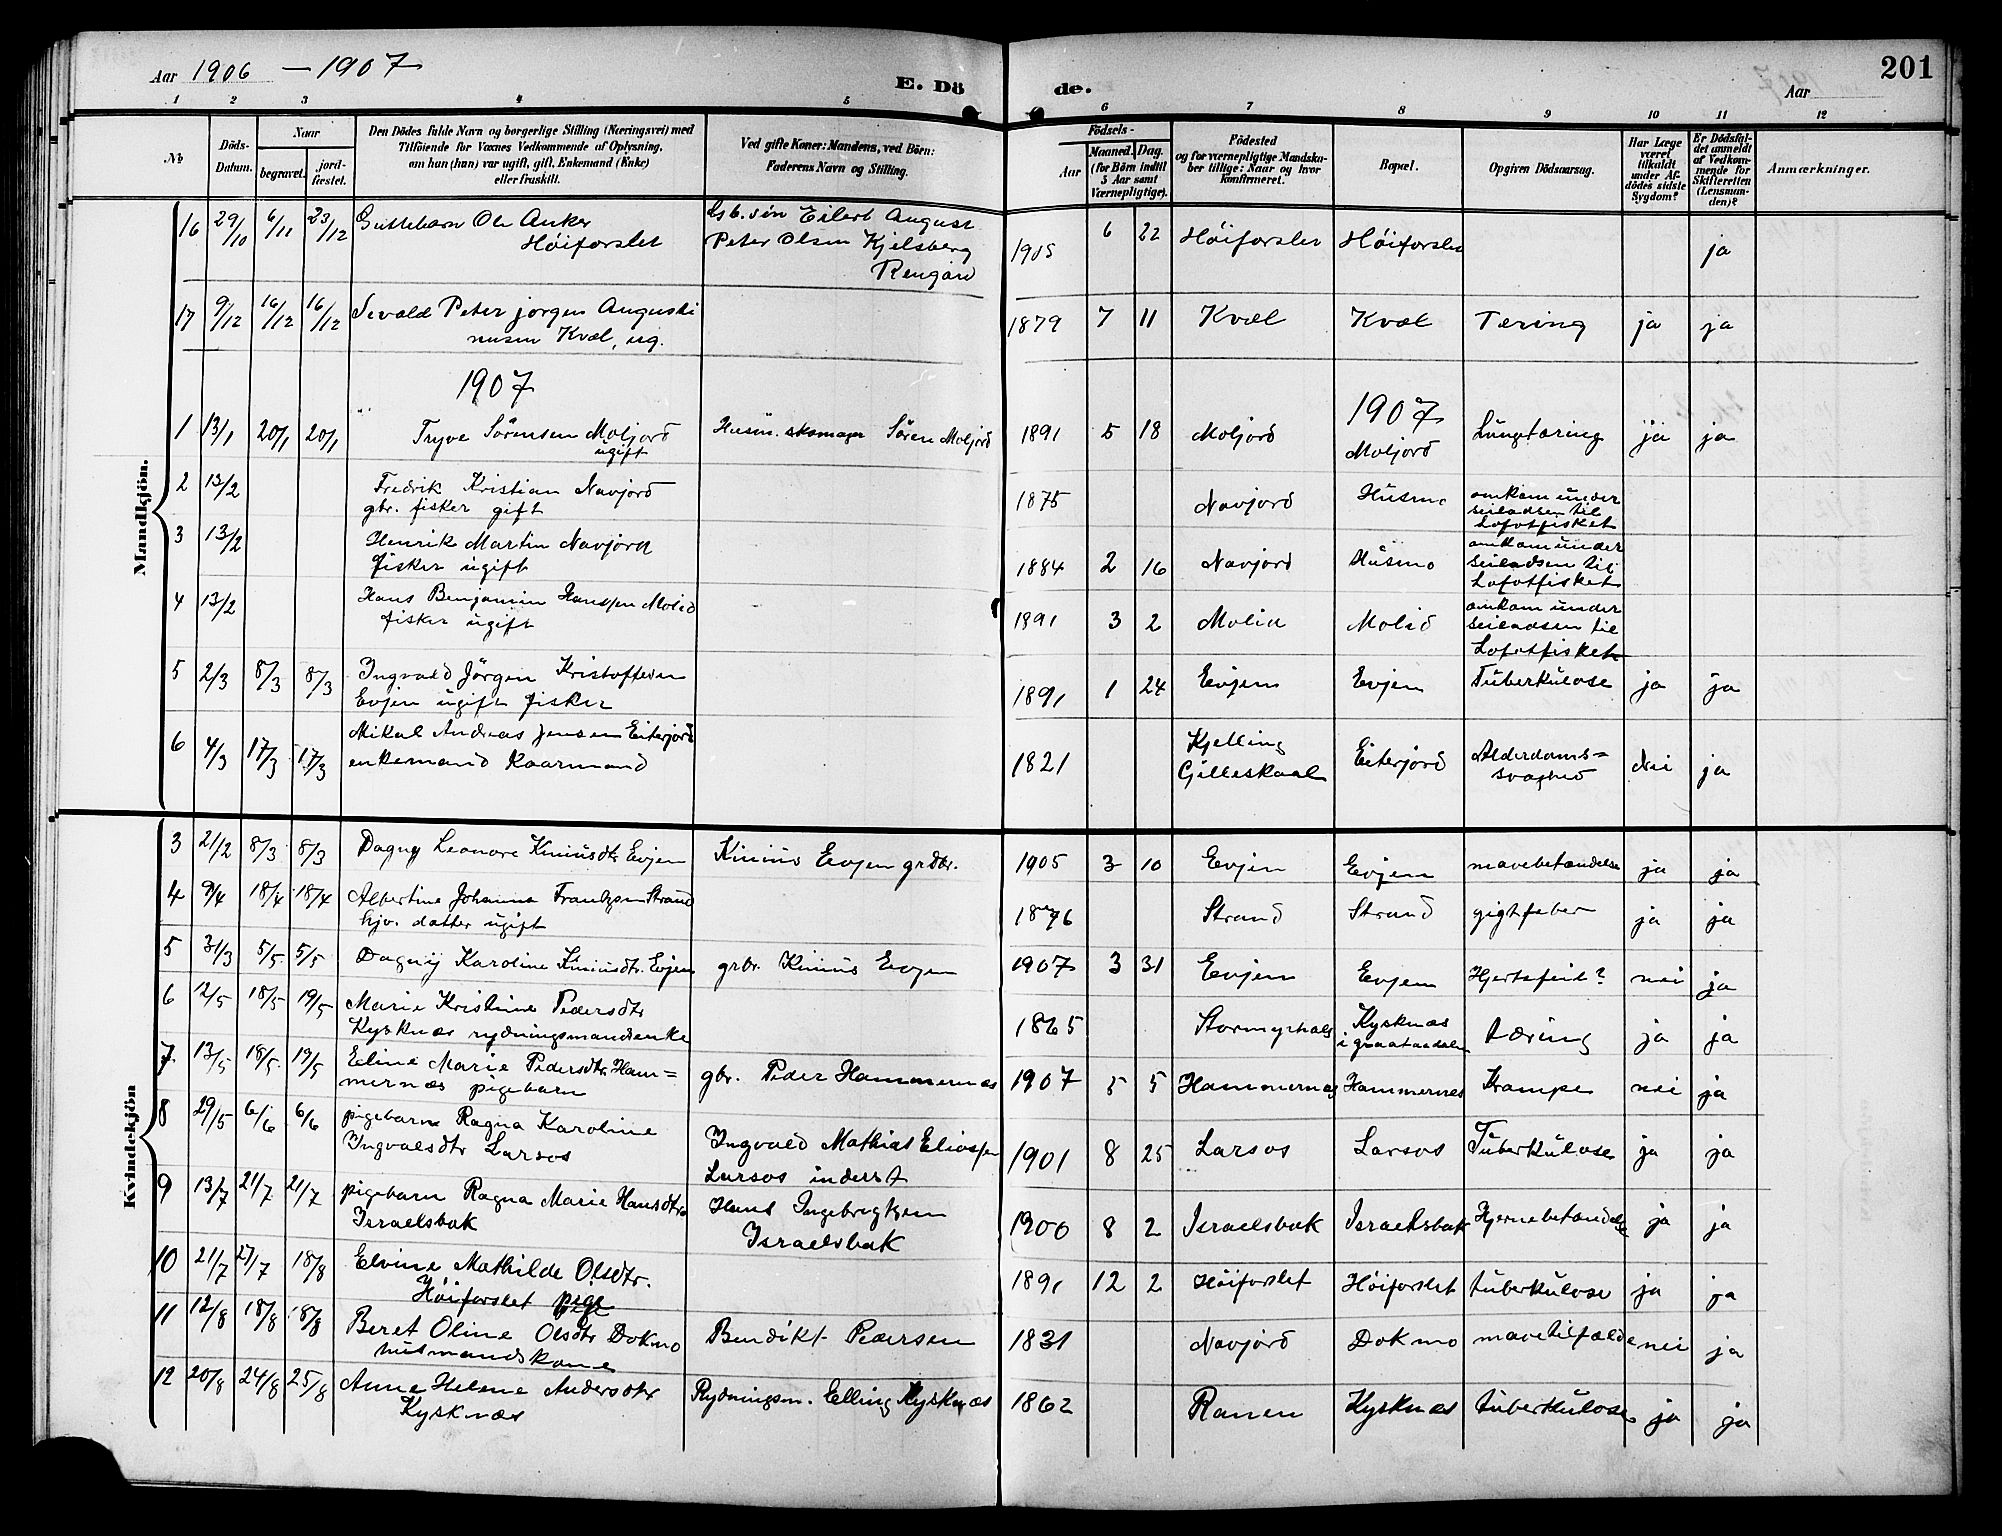 Aar 1906 - 1907
E. Dö
de.
Aar
201
1 2 3 4 5 6 7 8 9 10 11 12
No
Döds-
Datum.
Naar
begravet.
jord-
fæstet.
Den Dödes fulde Navn og borgerlige Stilling (Næringsvei) med
Tilföiende for Voxnes Vedkommende af Oplysning,
om han (hun) var ugift, gift, Enkemand (Enke)
eller fraskilt.
Ved gifte Koner: Mandens, ved Börn:
Faderens Navn og Stilling.
Födsels-
Aar
Maaned. Dag.
(for Börn indtil
5 Aar samt
Værnepligtige).
Födested
og for værnepligtige Mandska-
ber tillige: Naar og hvor
konfirmeret.
Bopæl.
Opgiven Dödsaarsag.
Har Læge
været
tilkaldt
under Af-
dödes sidste
Sygdom?
Er Dödsfal-
det anmeldt
af Vedkom-
mende for
Skifteretten
(Lensman-
den)?
Anmærkninger.
Mandkjön.
16 29/10 6/11 23/12 Guttebarn Ole Anker
Höiforslet
Eilert August
Peter Olsen Kjelsberg
Rengård
1905 6 22 Höiforslet Höiforslet ja
17 9/12 16/12 16/12 Sevald Peter Jørgen Augusti
nusen Kvæl, ug.
1879 7 11 Kvæl Kvæl Tering ja ja
1907
1907
1 13/1 20/1 20/1 Tryve Sörensen Moljord
ugift
Husm. skomager Sören Moljord
1891 5 18 Moljord Moljord Lungetæring ja ja
2 13/2 Fredrik Kristian Navjord
gbr. fisker gift
1875 Navjord Husmo omkom under
seiladsen til
Lofotfisket
3 13/2 Henrik Martin Navjord
fisker ugift
1884 2 16 Navjord Husmo omkom under
seiladsen til
Lofotfisket
4 13/2 Hans Benjamin Hanssen Molid
fisker ugift
1891 3 2 Molid Molid omkom under
seiladsen til
Lofotfisket
5 2/3 8/3 8/3 Ingvald Jörgen Kristoffersen
Evjen ugift fisker
1891 1 24 Evjen Evjen Tuberkulose ja ja
6 4/3 17/3 17/3 Mikal Andreas Jensen Eiterjord
enkemand Kaarmand
1821 Kjelling
Gilleskaal Eiterjord Alderdoms=
svaghed Nei ja
Kvindekjön
3 21/2 8/3 8/3 Dagny Leonore Kiniusdtr Evjen Kinius Evjen grdbr.
1905 3 10 Evjen Evjen mavebetændelse ja ja
4 9/4 18/4 18/4 Albertine Johanna Frantzsen Strand
hjv. datter ugift
1876 Strand Strand gigtfeber ja ja
5 31/3 5/5 5/5 Dagny Karoline Kiniusdtr. Evjen grbr. Kinius Evjen
1907 3 31 Evjen Evjen Hjertefeil? nei ja
6 12/5 18/5 19/5 Marie Kristine Pedersdtr
Kysknæs rydningsmandsenke
1865 Stormyrhals Kysknæs
i graataadalen tæring ja ja
7. 13/5 18/5 19/5 Eline Marie Pedersdtr. Ham=
mernæs pigebarn
gbr. Peder Hammernæs
1907 5 5 Hammernæs Hammernes Krampe nei ja
8 29/5 6/6 6/6 pigebarn Ragna Karoline
Ingvalsdtr Larsos
Ingvald Mathias Eliassen
Larsos inderst
1901 8 25 Larsos Larsos Tuberkulose ja ja
9 13/7 21/7 21/7 pigebarn Ragna Marie Hansdtr
Israelsbak
Hans Ingebrigtsen
Israelsbak
1900 8 2 Israelsbak Israelsbak Hjernebetændelse ja ja
10 21/7 27/7 18/8 Elvine Mathilde Olsdtr.
Höiforslet pige
1891 12 2 Höiforslet Höiforslet tuberkulose ja ja
11 12/8 18/8 18/8 Beret Oline Olsdtr Dokmo
husmandskone
Bendikt Pedersen
1831 Navjord Dokmo mavetilfælde nei ja
12 20/8 24/8 25/8 Anne Helene Andersdtr
Kysknæs
Rydningsm. Elling Kysknæs
1862 Ranen Kysknæs tuberkulose ja ja